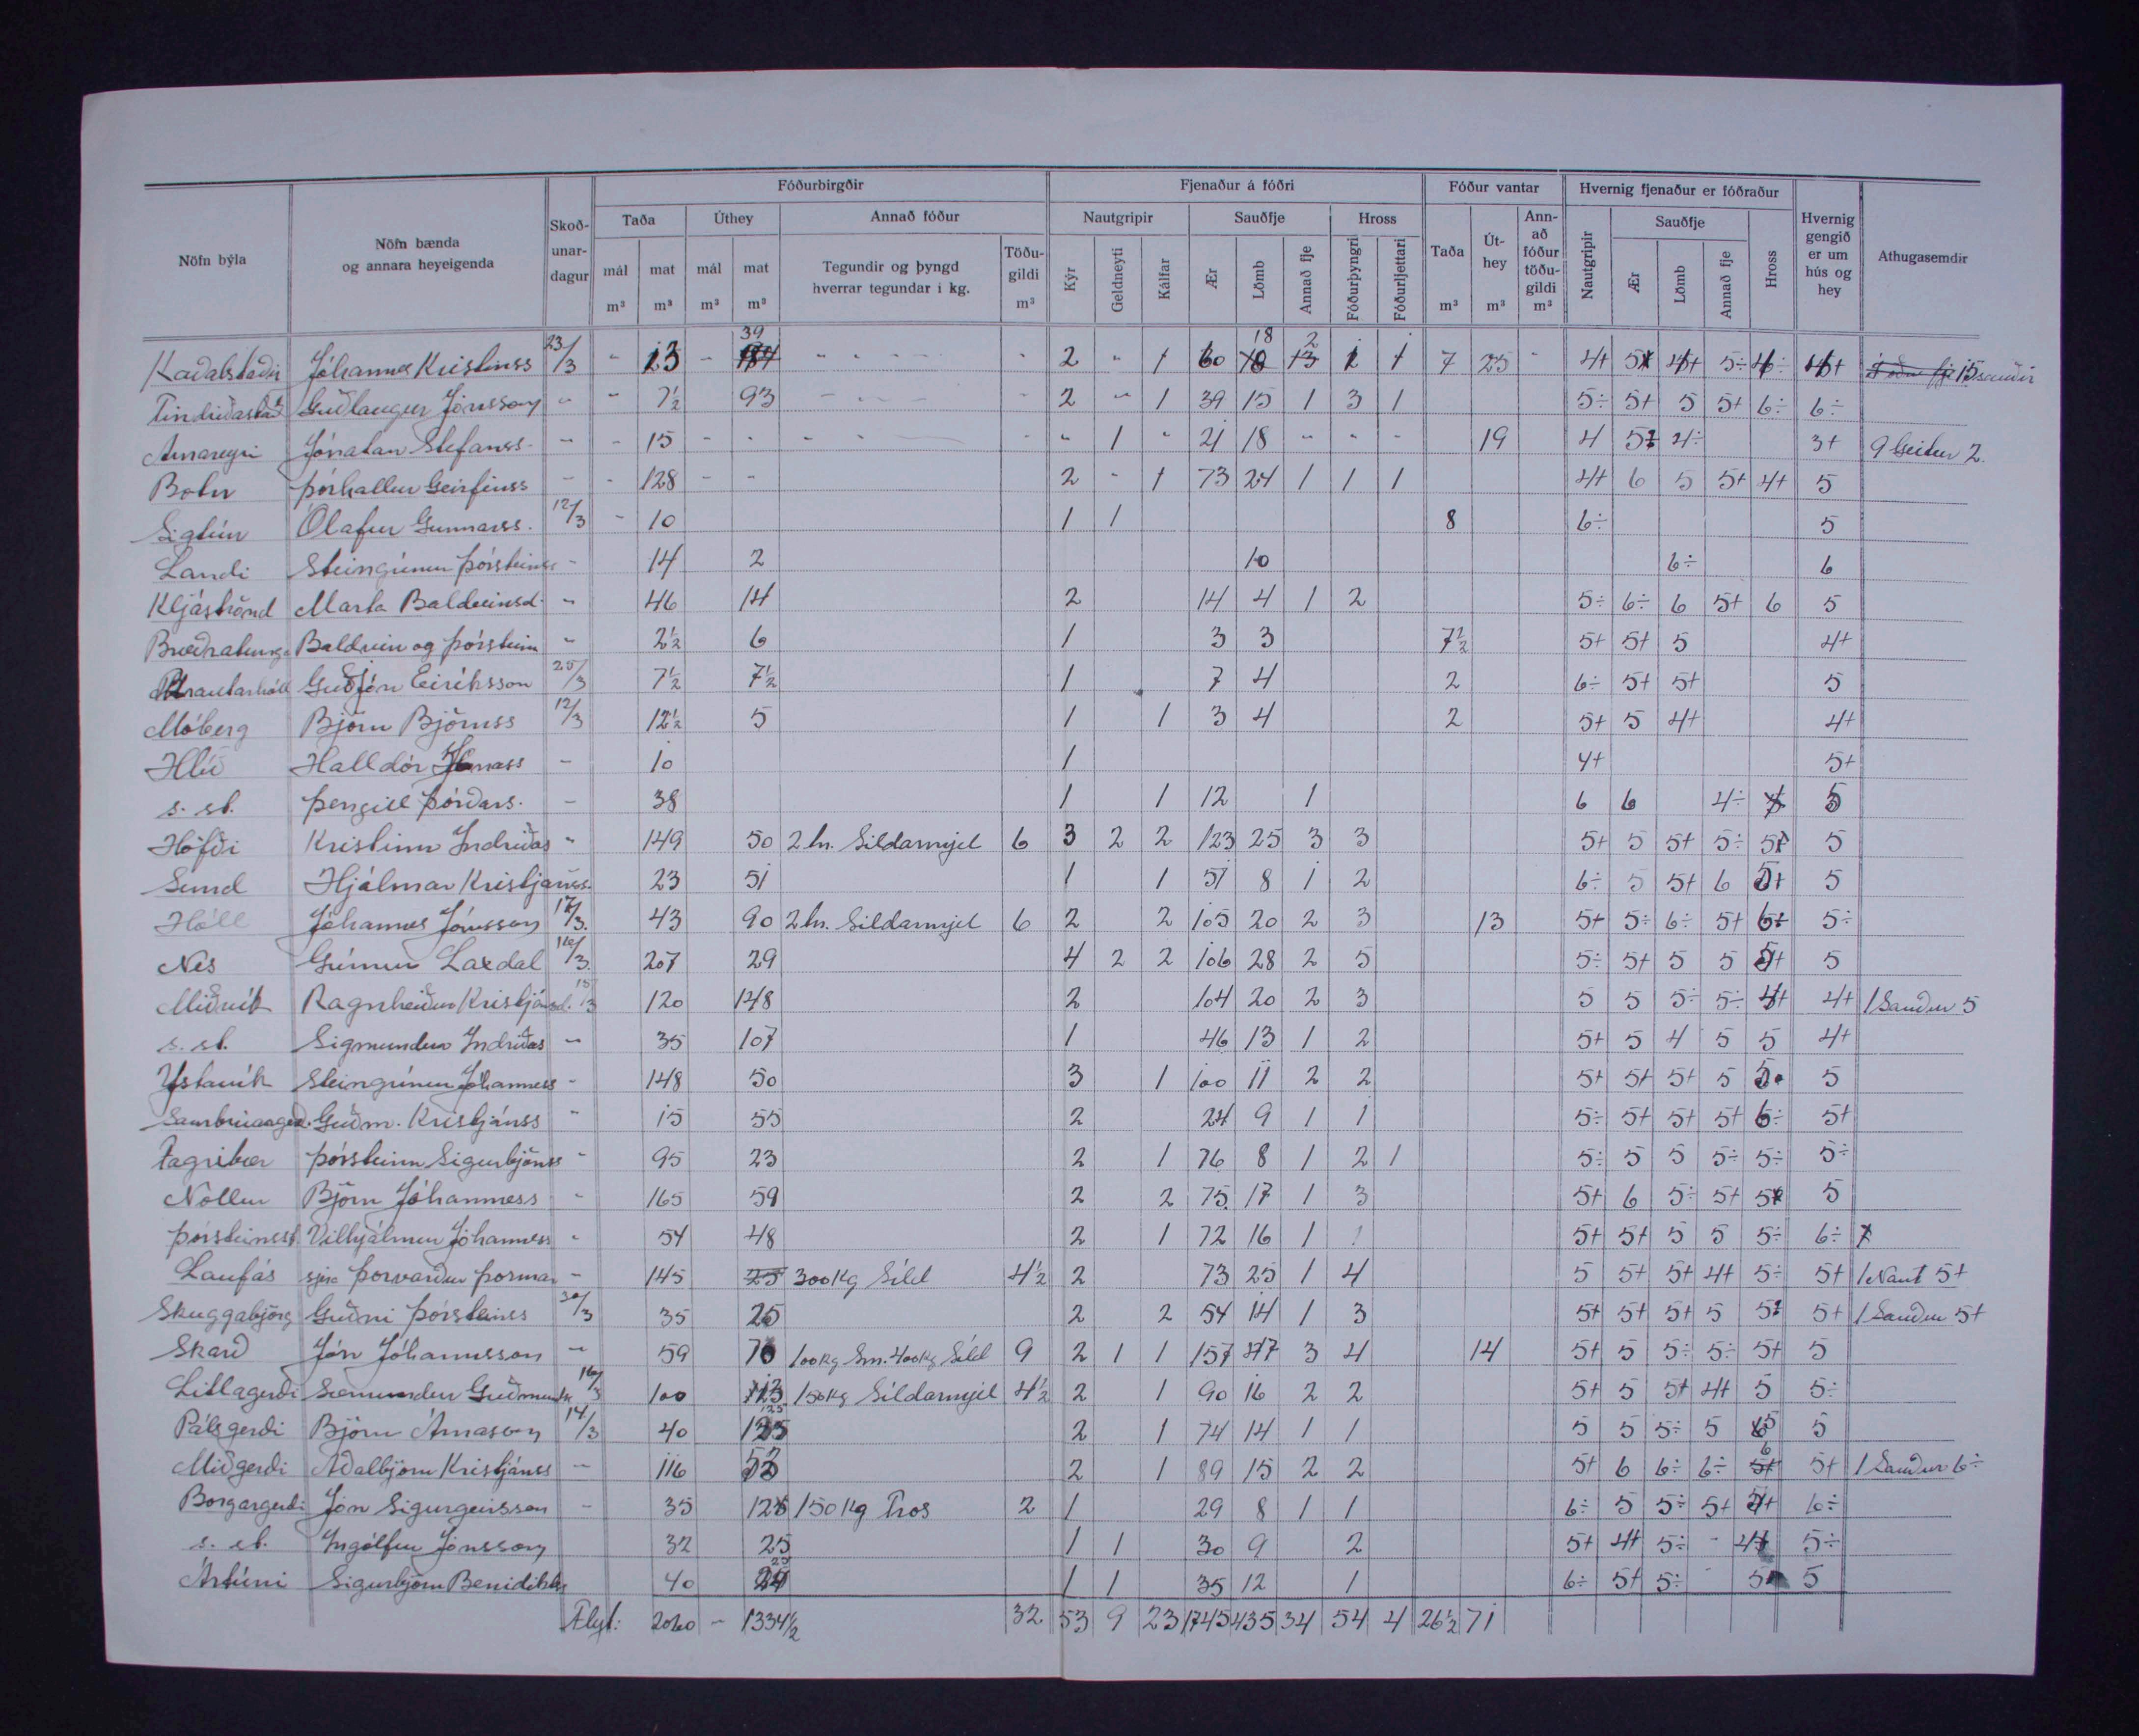 Fóðurbirgðir Fjenaður á fóðri Fóður vantar Hvernig fjenaður er fóðraður
Nöfn býla Nöfn bænda og annara heyeigenda Skoð-unar-dagur Taða Úthey Annað fóður Nautgripir Sauðfje Hross Taða Út-hey Ann-að fóður töðu-gildi Nautgripir Sauðfje Hross Hvernig gengið er um hús og hey Athugasemdir
mál m³ mat m³ mál m³ mat m³ Tegundir og þyngd hverrar tegundar í kg. Töðu-gildi m³ Kýr Geldneyti Kálfar Ær Lömb Annað fje Fóðurþyngri Fóðurljettari m³ m³ m³ Ær Lömb Annað fje
Kaðalstaðir Jóhannes Kristinss 23/3 - 13 - 39 2 " 1 60 18 2 1 1 7 25 - 4+ 5 4+ 5÷ 4+ 15 sauðir
Guðlaugur Jónsson - - 7½ 93 2 - 1 39 15 1 3 1 5÷ 5+ 5 5+ 6÷ 6÷
Jónatan Stefánss. - - 15 - - " 1 " 21 18 - - - 19 4 5 4÷ 3+ 9 Geitur 2.
Botn Þórhallur Geirfinss - - 128 - - 2 - 1 73 24 1 1 1 4+ 6 5 5+ 4+ 5
Sigtún Ólafur Gunnarss. 12/3 - 10 1 1 8 6÷ 5
Landi Steingrímur Þórsteinss - 14 2 10 6÷ 6
Kljáströnd Marta Baldvinsd. - 46 14 2 14 4 1 2 5÷ 6÷ 6 5+ 6 5
Bræðratunga Baldvin og Þórsteinn - 2½ 6 1 3 3 7½ 5+ 5+ 5 4+
Brautarhóll Guðjón Eiríksson 25/3 7½ 7½ 1 7 4 2 6÷ 5+ 5+ 5
Móberg Björn Björnss 12/3 12½ 5 1 1 3 4 2 5+ 5 4+ 4+
Hlíð Halldór - 10 1 4+ 5+
s. st. Þengill Þórðars. - 38 1 1 12 1 6 6 4÷ 5
Höfði Kristinn Indriðas - 149 50 2 tn. Síldarmjel 6 3 2 2 123 25 3 3 5+ 5 5+ 5÷ 5 5
Sund Hjálmar Kristjánss. 23 51 1 1 51 8 1 2 6÷ 5 5+ 6 5+ 5
Hóll Jóhannes Jónsson 17/3. 43 90 2 tn. Síldarmjel 6 2 2 105 20 2 3 13 5+ 5÷ 6÷ 5+ 6+ 5÷
Nes Grímur Laxdal 16/3. 207 29 4 2 2 106 28 2 5 5÷ 5+ 5 5 5+ 5
Miðvík Ragnheiður Kristjánsd. 15/3 120 148 2 104 20 2 3 5 5 5÷ 5÷ 4+ 4+ 1 Sauður 5
s. st. Sigmundur Indriðas - 35 107 1 46 13 1 2 5+ 5 4 5 5 4+
Ystavík Steingrímur Jóhanness - 148 50 3 1 100 11 2 2 5+ 5+ 5+ 5 5 5
Guðm. Kristjánss - 15 55 2 24 9 1 1 5÷ 5+ 5+ 5+ 6÷ 5+
Fagribær Þórsteinn Sigurbjörnss - 95 23 2 1 76 8 1 2 1 5÷ 5 5 5÷ 5÷ 5÷
Nöllur Björn Jóhanness - 165 59 2 2 75 17 1 3 5+ 6 5÷ 5+ 5 5
Þórsteinsst. Vilhjálmur Jóhanness - 54 48 2 1 72 16 1 1 5+ 5+ 5 5 5÷ 6÷
Laufás sjera Þorvarður Þormar - 145 25 300 kg Síld 4½ 2 73 25 1 4 5 5+ 5+ 4+ 5÷ 5+ 1 Naut 5+
Skuggabjörg Guðni Þórsteinss 30/3 35 25 2 2 54 14 1 3 5+ 5+ 5+ 5 5 5+ 1 Sauður 5+
Skarð Jón Jóhannesson - 59 100 kg Sm. 400 kg Síld 9 2 1 1 157 3 4 14 5+ 5 5÷ 5÷ 5+ 5
Litlagerði Sæmundur Guðmundss 16/3 100 150 kg Síldarmjel 4½ 2 1 90 16 2 2 5+ 5 5+ 4+ 5 5÷
Pálsgerði Björn Árnason 14/3 40 125 2 1 74 14 1 1 5 5 5÷ 5 5 5
Miðgerði Aðalbjörn Kristjánss - 116 2 1 89 15 2 2 5+ 6 6÷ 6÷ 6 5+ 1 Sauður 6÷
Borgargerði Jón Sigurgeirsson - 35 150 kg Tros 2 1 29 8 1 1 6÷ 5 5÷ 5+ 6÷
s. st. Ingólfur Jónsson 32 25 1 1 30 9 2 5+ 4+ 5÷ - 4+ 5÷
Ártúni Sigurbjörn Benidiktss 40 25 1 1 35 12 1 6÷ 5+ 5÷ - 5 5
Flyt: 2020 - 1334½ 32 53 9 23 1745 435 34 54 4 26½ 71